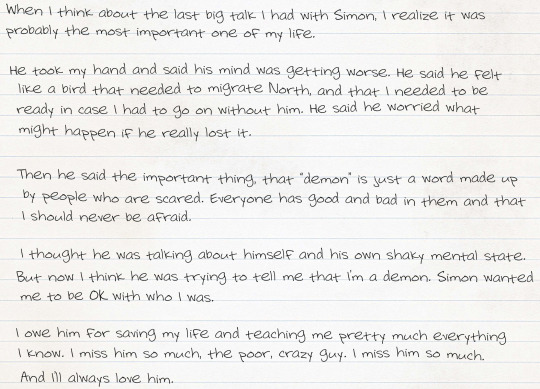 When I think about the last big talk I had with Simon, I realize it was
probably the most important one of my life.
He took my hand and said his mind was getting worse. He said he felt
like a bird that needed to migrate North, and that I needed to be
ready in case I had to go on without him. He said he worried what
might happen if he really lost it.
Then he said the important thing, that "demon" is just a word made up
by people who are scared. Everyone has good and bad in them and that
I should never be afraid.
I thought he was talking about himself and his own shaky mental state.
But now I think he was trying to tell me that I'm a demon. Simon wanted
me to be OK with who I was.
I owe him for saving my life and teaching me pretty much everything
I know. I miss him so much, the poor, crazy guy. I miss him so much.
And I'll always love him.